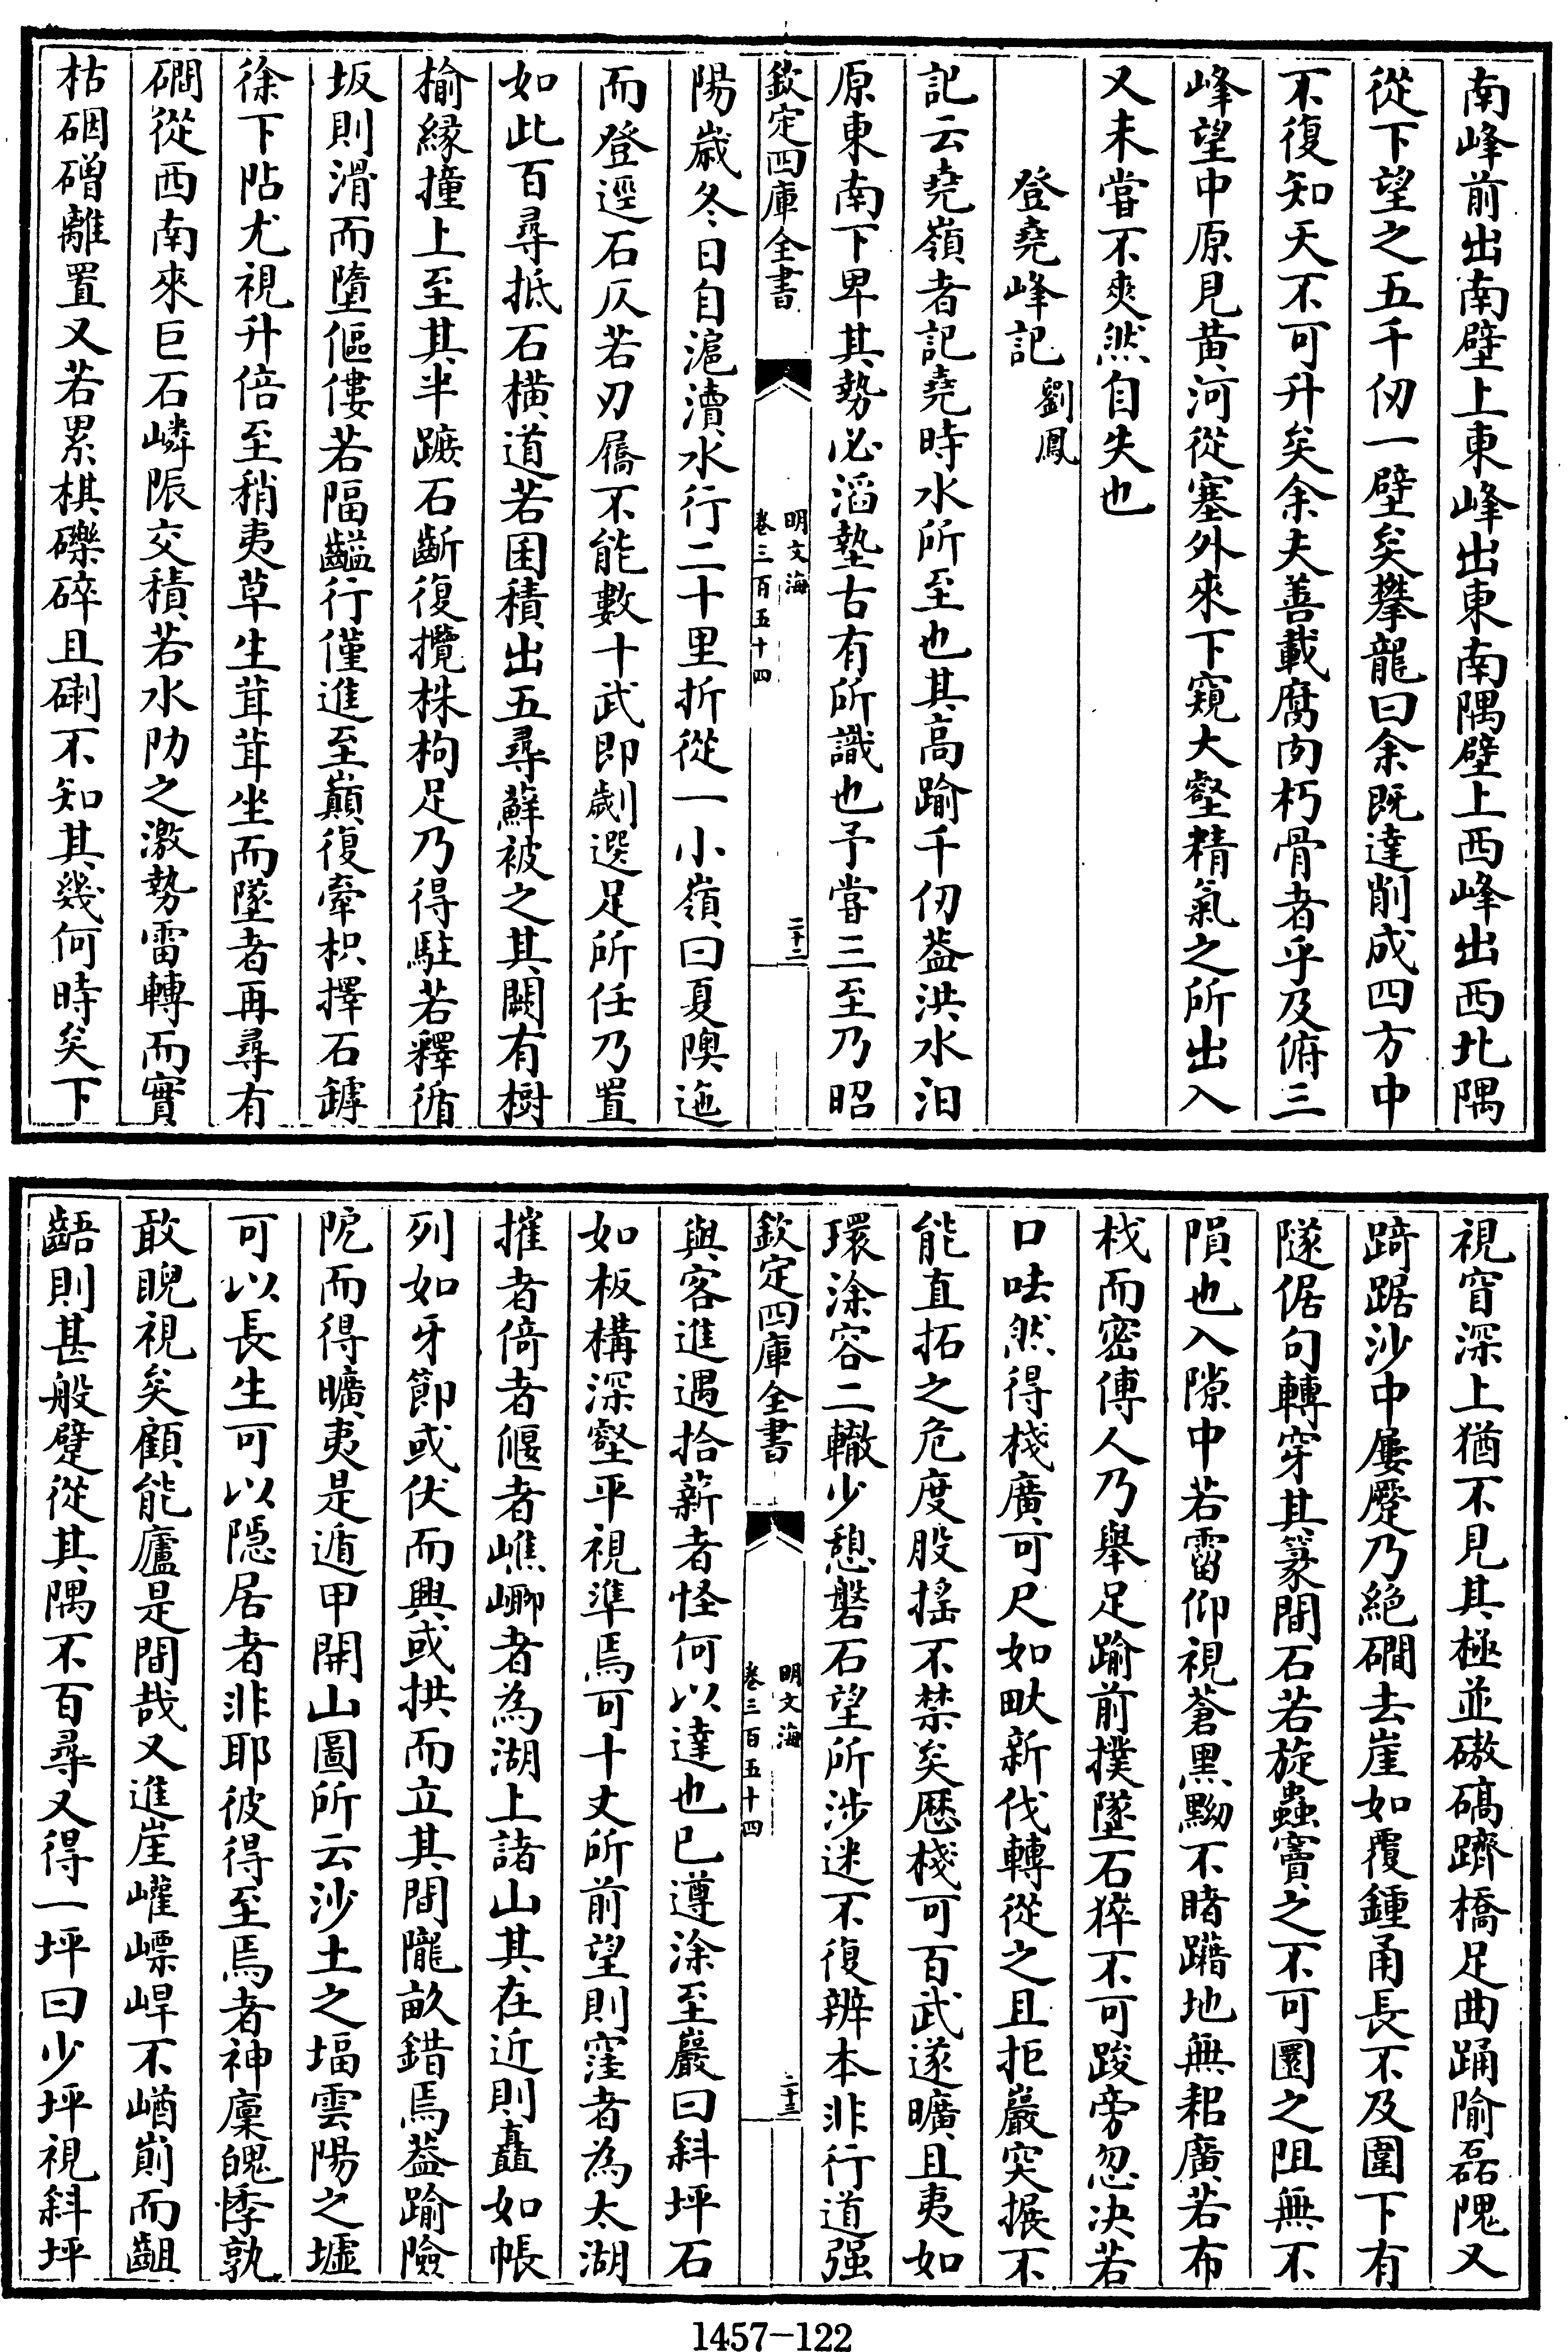 南峰前出南壁上東峰出東南隅壁上西峰出西北隅
從下望之五千仞一壁矣攀龍曰余既達削成四方中
不復知天不可升矣余夫善載腐肉朽骨者乎及俯三
峰望中原見黄河從塞外來下窺大壑精氣之所出入
又未嘗不爽然自失也
登堯峰記 劉鳳
記云堯嶺者記堯時水所至也其高踰千仞葢洪水汩
原東南下卑其勢必滔墊古有所識也予嘗三至乃昭
欽定四庫全書 明文海 卷三百五十四 二十二
陽歲冬日自滬瀆水行二十里折從一小嶺曰夏隩迤
而登逕石仄若刃屩不能數十武即劌選足所任乃置
如此百尋抵石横道若囷積出五尋蘚被之其闕有樹
榆緣撞上至其半蹠石齗復攬株枸足乃得駐若釋循
坂則滑而墮傴僂若隔齸行僅進至巔復牽枳擇石罅
徐下阽尤視升倍至稍夷草生茸茸坐而墜者再尋有
磵從西南來巨石嶙陙交積若水阞之激勢雷轉而實
枯硱磳離置又若累棋礫碎且磵不知其幾何時矣下
視窅深上猶不見其極並磝碻躋橋足曲踊隃磊隗又
踦踞沙中屢蹙乃絶磵去崖如覆鍾甬長不及圍下有
隧倨句轉穿其篆間石若旋蟲竇之不可圜之阻無不
隕也入隙中若霤仰視蒼黑黝不睹躤地無耜廣若布
栈而密傅人乃舉足踰前撲墜石猝不可踆旁忽决若
口呿然得棧廣可尺如畎新伐轉從之且拒巖突搌不
能直拓之危度股摇不禁矣歴棧可百武遂曠且夷如
環涂容二轍少憩磐石望所涉迷不復辨本非行道强
欽定四庫全書 明文海 卷三百五十四 二十三
與客進遇拾薪者怪何以達也已遵涂至巖曰斜坪石
如板構深壑平視準焉可十丈所前望則窪者為太湖
摧者倚者偃者嶕嶀者為湖上諸山其在近則矗如帳
列如牙節或伏而興或拱而立其間隴畝錯焉葢踰險
陀而得曠夷是遁甲開山圖所云沙土之堛雲陽之墟
可以長生可以隱居者非耶彼得至焉者神廩魄悸孰
敢睨視矣顧能廬是間哉又進崖巏嶫㟁不崷崱而齟
齬則甚般躄從其隅不百尋又得一坪曰少坪視斜坪
1457-122